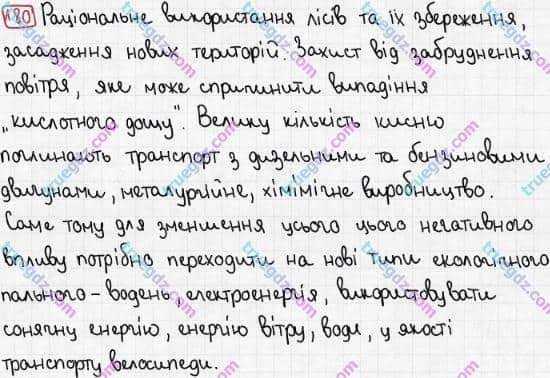 180 Раціональне використання лісів та їх збереження,
засадження нових територій. Захист від забруднення
повітря, яке може спричинити випадіння
„кислотного дощу". Велику кількість кисню
поглинають транспорт з дизельними та бензиновими
двигунами, металургійне, хімімічне виробництво.
Саме тому для зменшення усього цього негативного
впливу потрібно переходити на нові типи екологічного
пального – водень, електроенергія, використовувати
сонячну енергію, енергію вітру, води, у якості
транспорту велосипеди.